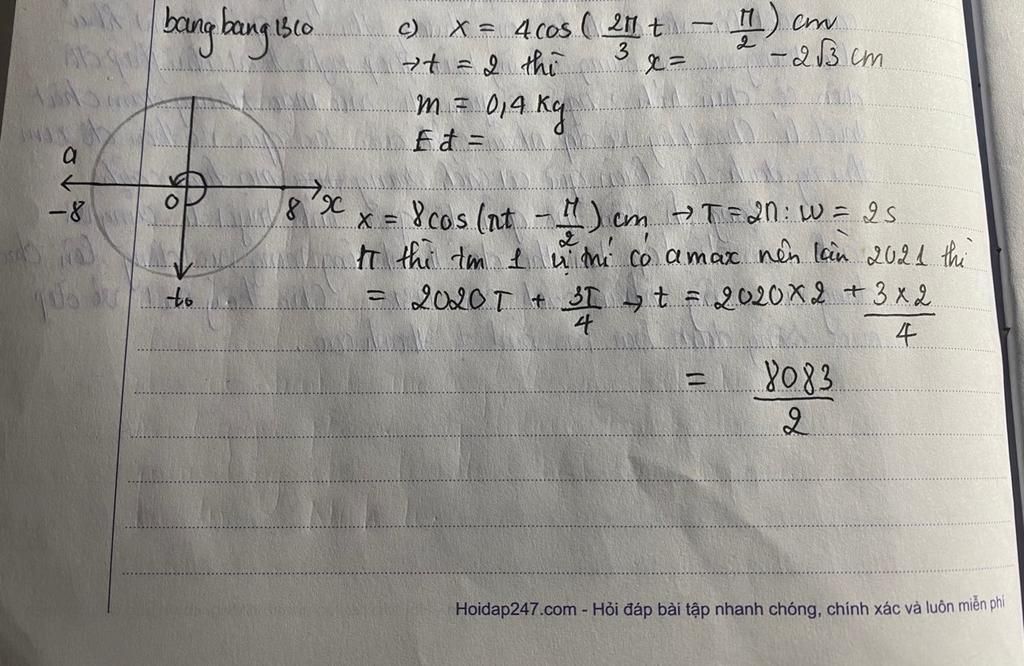 bangbang1310
c) x = 4cos(2π/3 t - π/2) cm
→t = 2 thì x = -2√3 cm
m = 0,4 Kg
Eđ =
a
-8 0 8 x
t₀
x = 8cos(πt - π/2) cm → T = 2π : ω = 2s
1T thì tm 1 vị trí có amax nên lần 2021 thì
= 2020T + 3T/4 → t = 2020×2 + 3×2/4
= 8083/2
Hoidap247.com - Hỏi đáp bài tập nhanh chóng, chính xác và luôn miễn phí